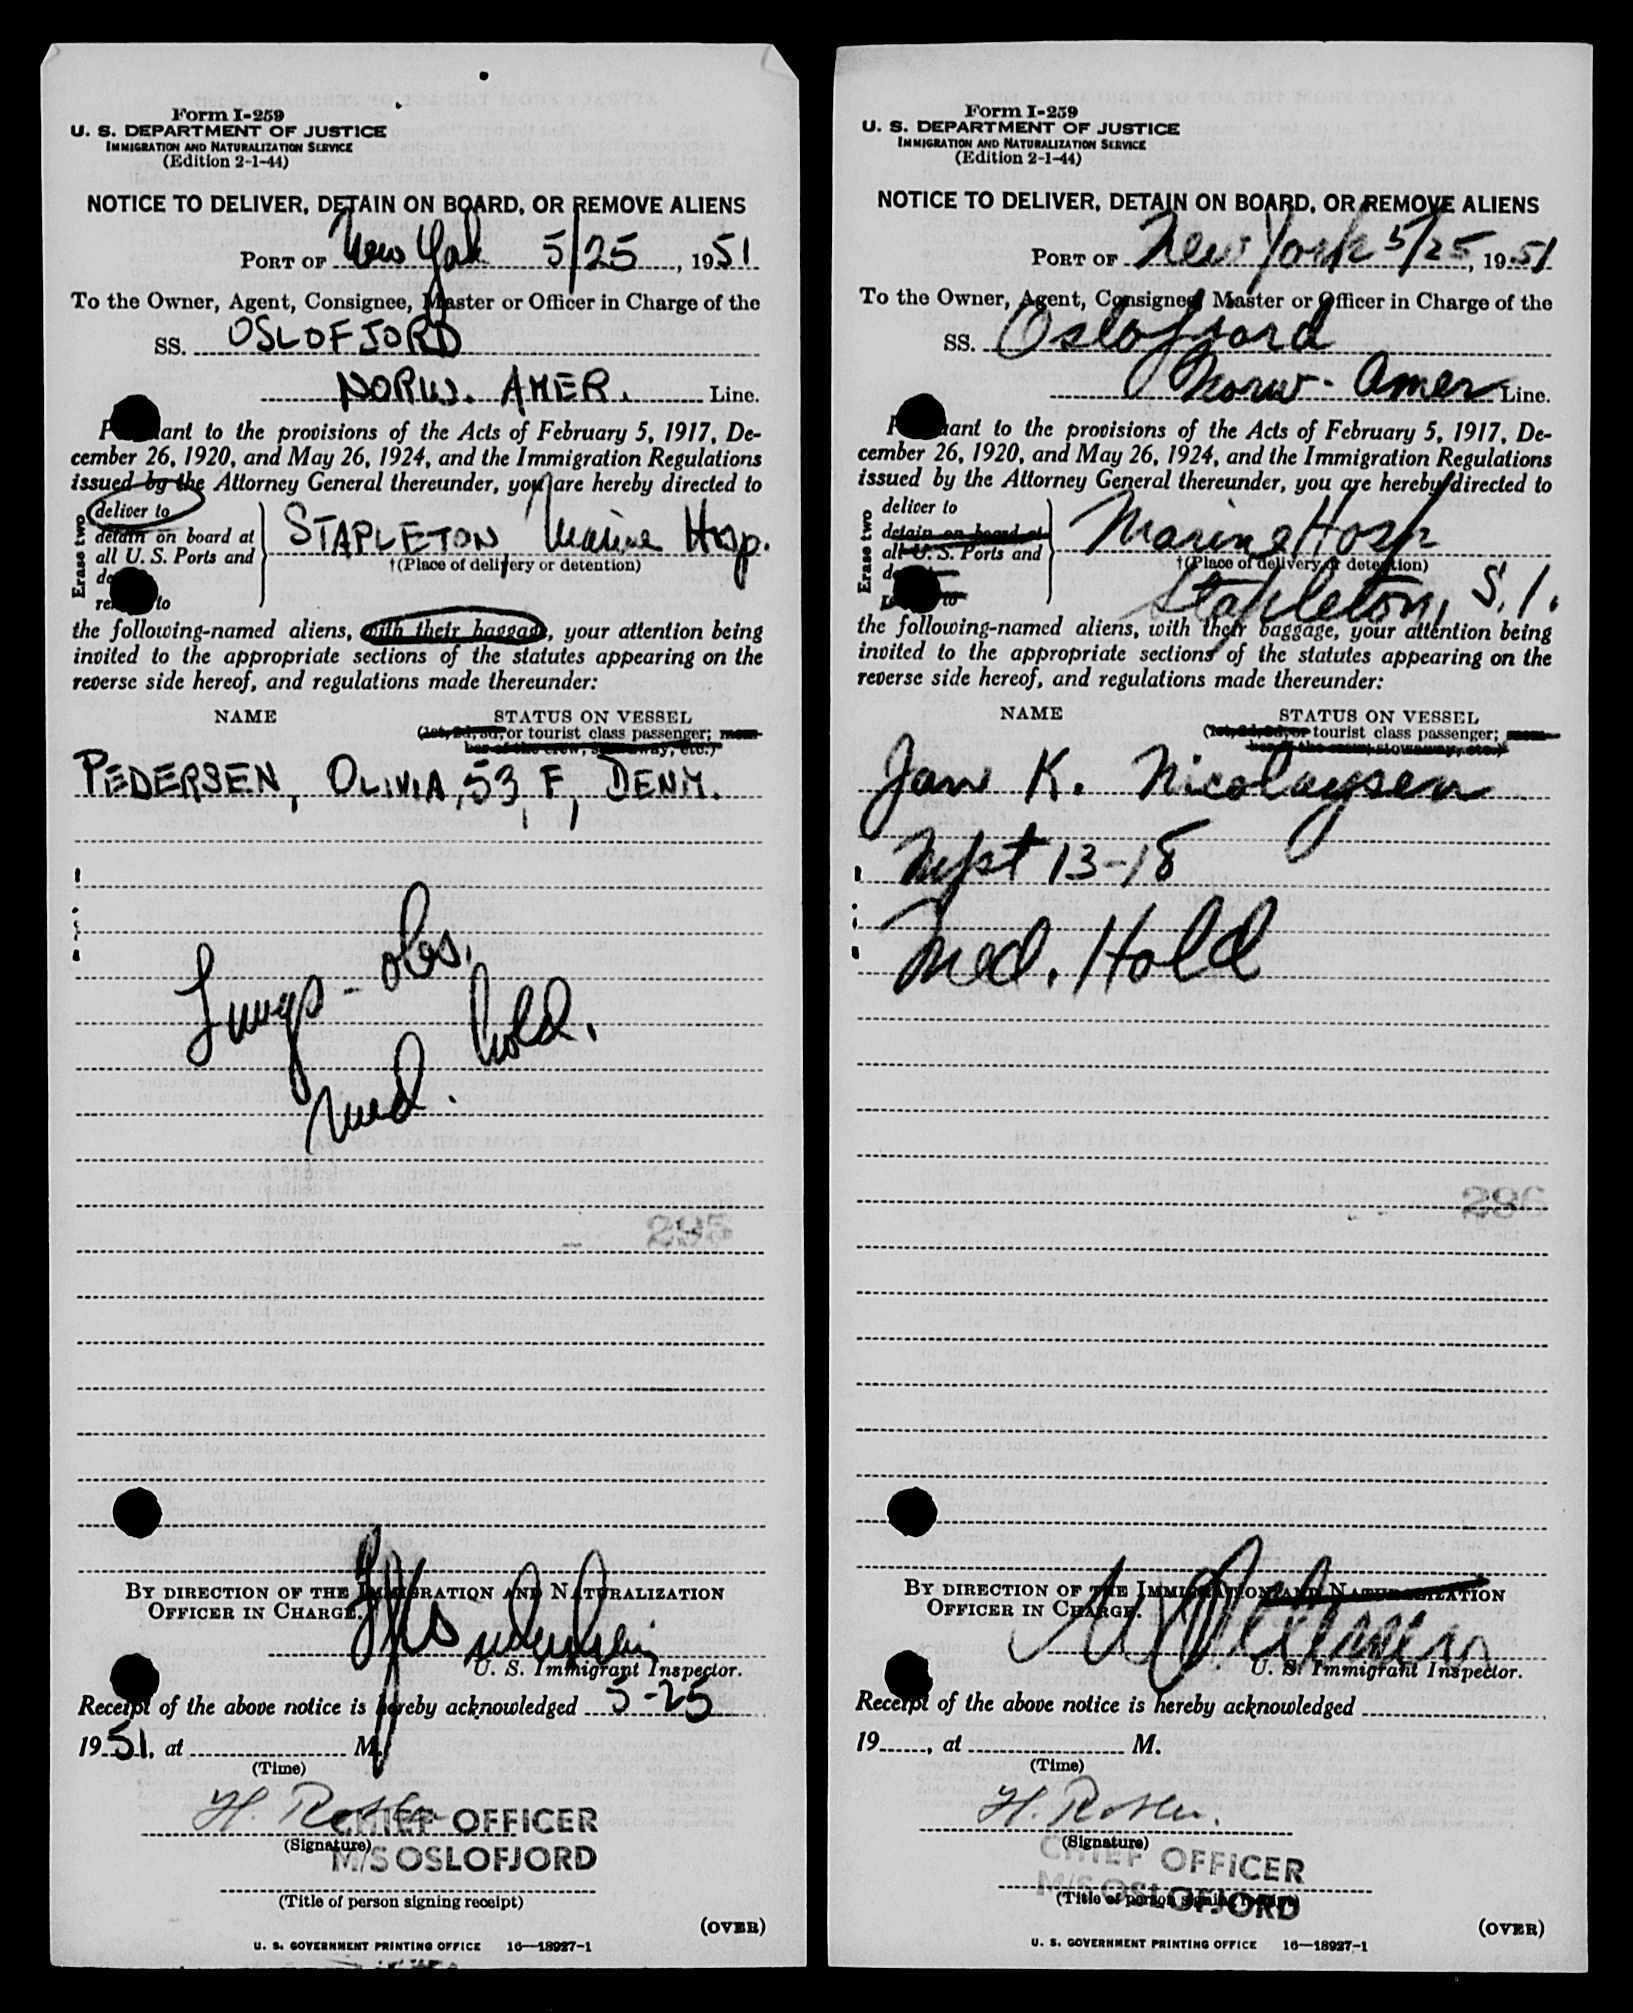 Form I-259
U. S. DEPARTMENT OF JUSTICE
IMMIGRATION AND NATURALIZATION SERVICE
(Edition 2-1-44)
NOTICE TO DELIVER, DETAIN ON BOARD, OR REMOVE ALIENS
PORT OF New York 5/25, 1951
To the Owner, Agent, Consignee, Master or Officer in Charge of the
SS. OSLOFJORD
NORW. AMER. Line.
ant to the provisions of the Acts of February 5, 1917, De-
cember 26, 1920, and May 26, 1924, and the Immigration Regulations
issued by the Attorney General thereunder, you are hereby directed to
Erase two
deliver to
detain on board at
all U. S. Ports and
to
STAPLETON Marine Hosp.
†(Place of delivery or detention)
the following-named aliens, with their baggage, your attention being
invited to the appropriate sections of the statutes appearing on the
reverse side hereof, and regulations made thereunder:
NAME STATUS ON VESSEL
(1st, 2d, 3d, or tourist class passenger; mem-
ber of the crew; stowaway, etc.)
PEDERSEN, OLIVIA, 53, F, DENM.
Lungs - obs.
med. hold.
295
BY DIRECTION OF THE IMMIGRATION AND NATURALIZATION
OFFICER IN CHARGE.
U. S. Immigrant Inspector.
Receipt of the above notice is hereby acknowledged 5-25
1951, at M.
(Time)
H.
CHIEF OFFICER
(Signature)
M/S OSLOFJORD
(Title of person signing receipt)
(OVER)
U. S. GOVERNMENT PRINTING OFFICE 16—18927-1
Form I-259
U. S. DEPARTMENT OF JUSTICE
IMMIGRATION AND NATURALIZATION SERVICE
(Edition 2-1-44)
NOTICE TO DELIVER, DETAIN ON BOARD, OR REMOVE ALIENS
PORT OF New York 5/25, 1951
To the Owner, Agent, Consignee, Master or Officer in Charge of the
SS. Oslofjord
Norw. Amer Line.
ant to the provisions of the Acts of February 5, 1917, De-
cember 26, 1920, and May 26, 1924, and the Immigration Regulations
issued by the Attorney General thereunder, you are hereby directed to
Erase two
deliver to
detain on board at
all U. S. Ports and
to
Marine Hosp
†(Place of delivery or detention)
Stapleton, S. I.
the following-named aliens, with their baggage, your attention being
invited to the appropriate sections of the statutes appearing on the
reverse side hereof, and regulations made thereunder:
NAME STATUS ON VESSEL
(1st, 2d, 3d, or tourist class passenger; mem-
ber of the crew; stowaway, etc.)
Jan K. Nicolaysen
13-18
Med. Hold
286
BY DIRECTION OF THE IMMIGRATION AND NATURALIZATION
OFFICER IN CHARGE.
U. S. Immigrant Inspector.
Receipt of the above notice is hereby acknowledged
19, at M.
(Time)
H.
(Signature)
CHIEF OFFICER
M/S OSLOFJORD
(Title of person signing receipt)
(OVER)
U. S. GOVERNMENT PRINTING OFFICE 16—18927-1